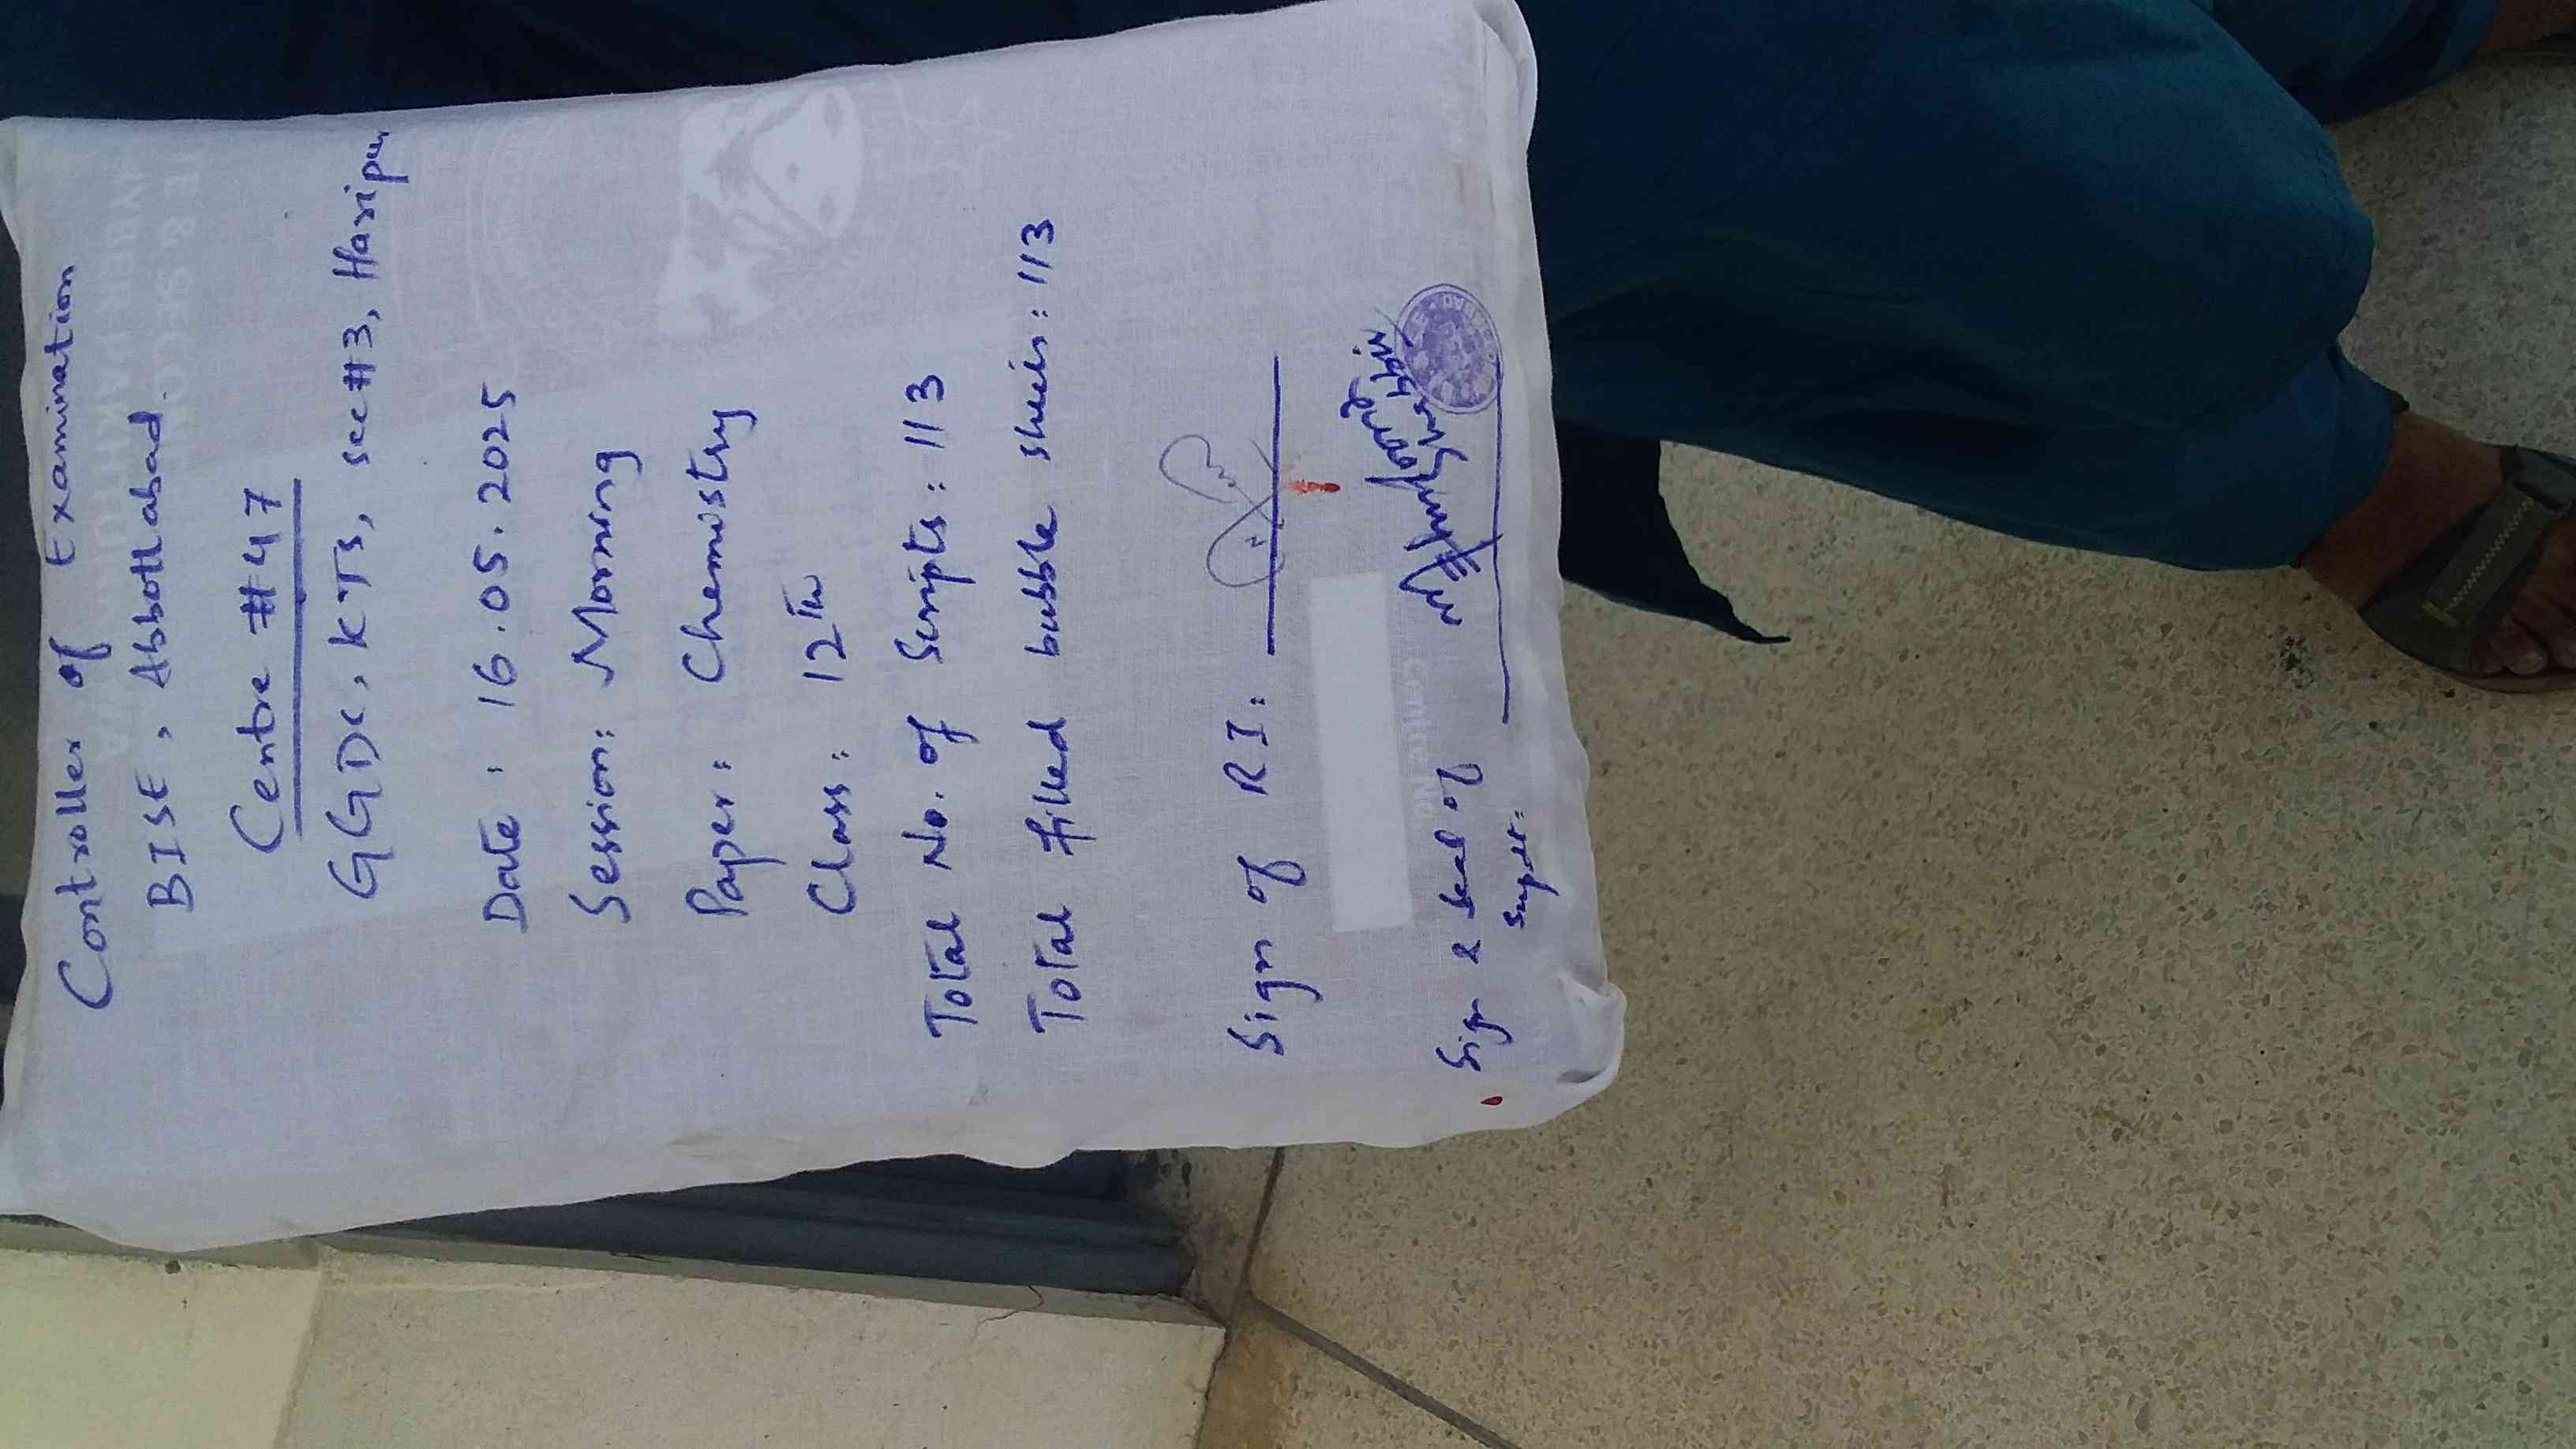 Controller of Examination
BISE, Abbottabad.
Centre #47
GGDC, KTS, sec#3, Haripur
Date: 16.05.2025
Session: Morning
Paper: Chemistry
Class: 12th
Total No. of Scripts: 113
Total filled bubble sheets: 113
Sign of RI:
Centre No
Sign & Seal of
Supdt: